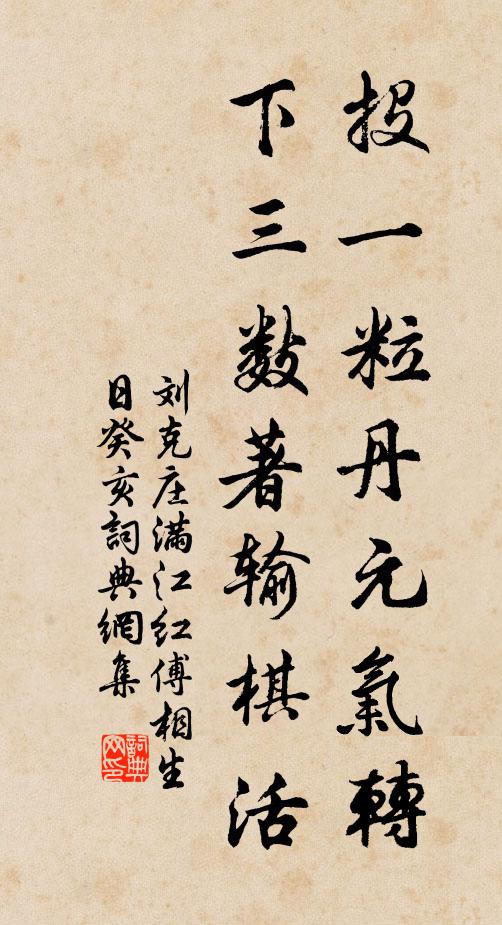 投一粒丹元氣轉
下三数著输棋活
刘克庄满江红傅相生
日癸亥詞典網集
詞典
网印